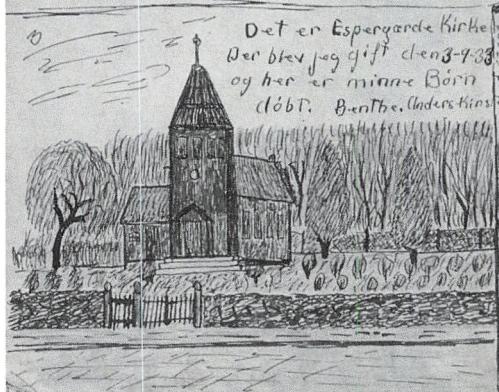 Det er Espergærde Kirke
Der blev jeg gift den 3-9-33
og her er minne Börn
döbt. Benthe. Anders